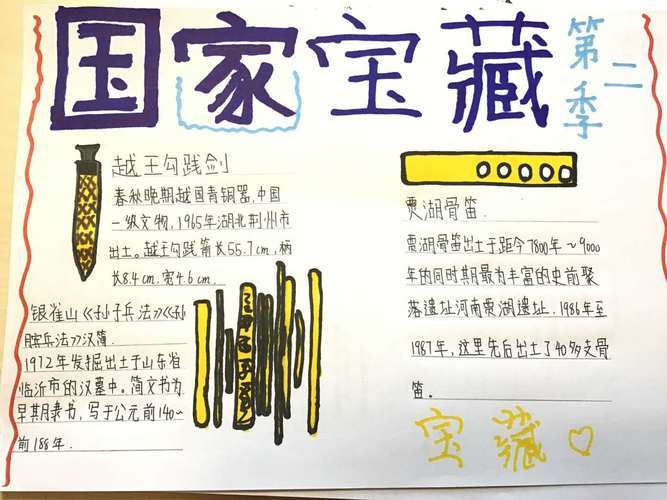 国家宝藏
第二季
越王勾践剑
春秋晚期越国青铜器,中国
一级文物,1965年湖北荆州市
出土。越王勾践箭长55.7cm,柄
长8.4cm.宽4.6cm.
银雀山《孙子兵法》《孙
膑兵法》汉简
1972年发掘出土于山东省
临沂市的汉墓中。简文书为
早其月隶书,写于公元前140~
前188年.
贾湖骨笛.
贾湖骨笛出土于距今7800年~9000
年的同时期最为丰富的史前聚
落遗址河南贾湖遗址,1986年至
1987年,这里先后出土了40多支骨
笛。
宝藏♡